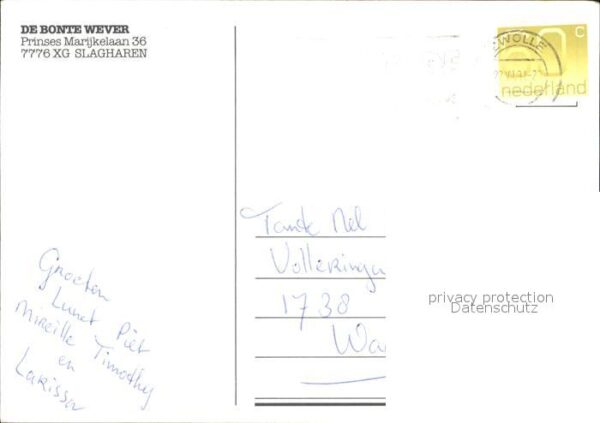 DE BONTE WEVER
Prinses Marijkelaan 36
7776 XG SLAGHAREN
ZWOLLE
60 C
nederland
Tante Nel
Volleringa
1738
Wa
Groeten
Piet
Mireille Timothy
en
Larissa
privacy protection
Datenschutz